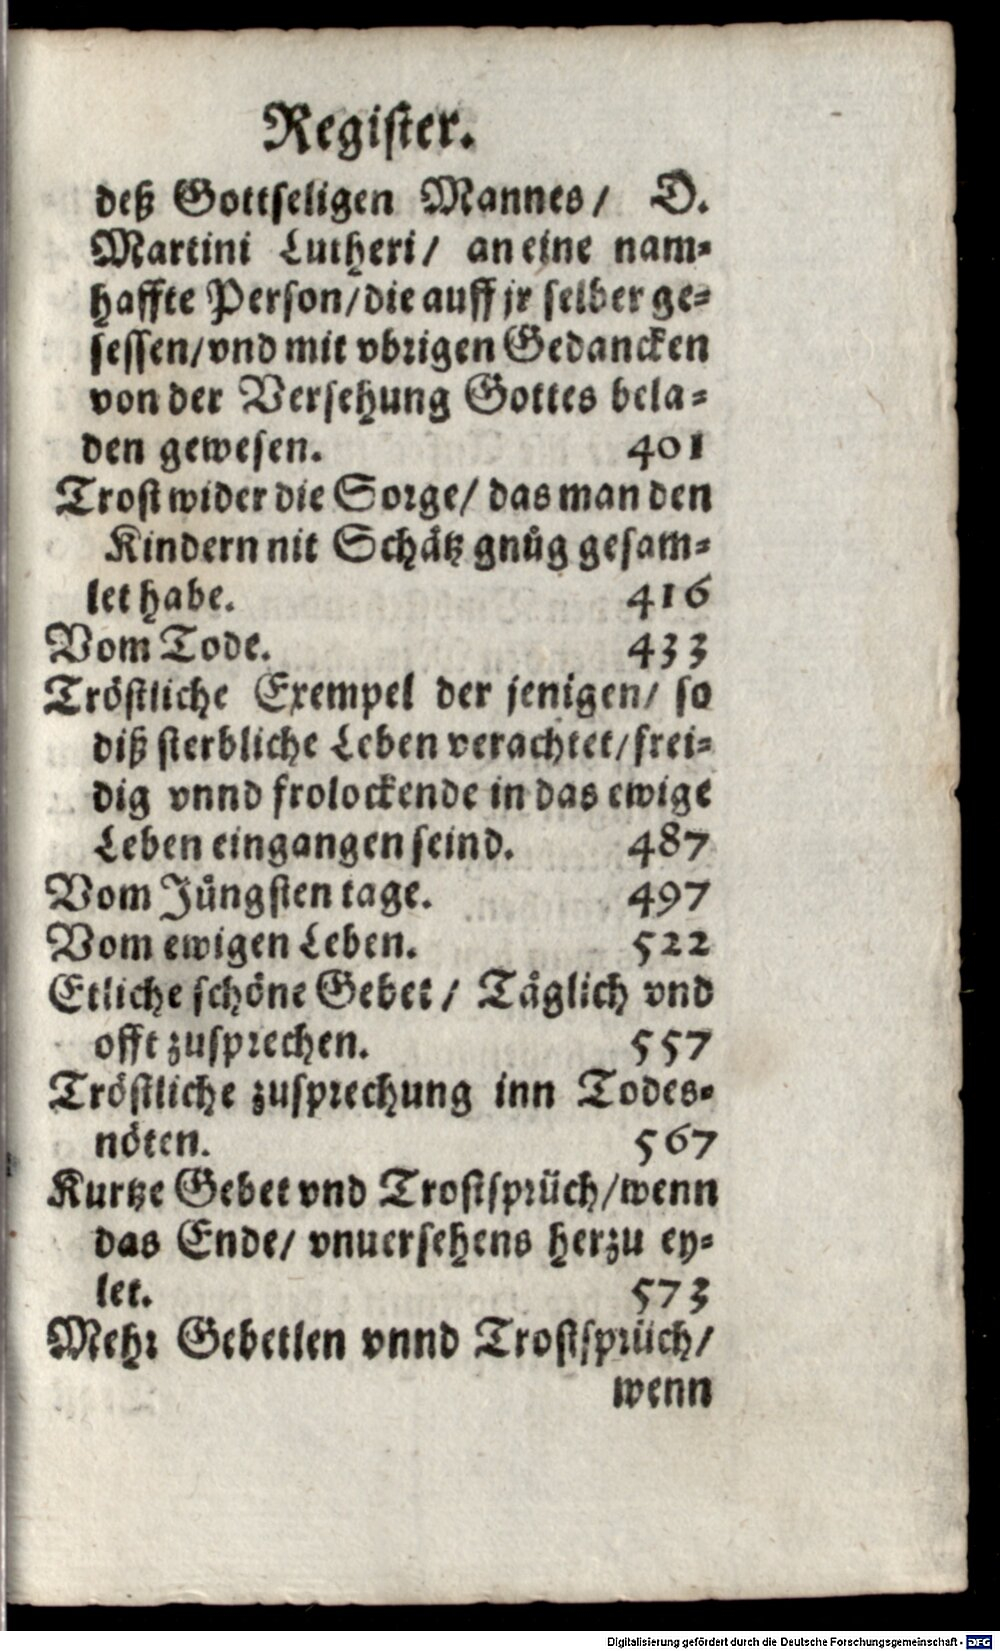 Register.
deß Gottseligen Mannes/ D.
Martini Lutheri/ an eine nam-
haffte Person/die auff jr selber ge-
sessen/vnd mit vbrigen Gedancken
von der Versehung Gottes bela-
den gewesen. 401
Trost wider die Sorge/ das man den
Kindern nit Schätz gnůg gesam-
let habe. 416
Vom Tode. 433
Tröstliche Exempel der jenigen/ so
diß sterbliche Leben verachtet/frei-
dig vnnd frolockende in das ewige
Leben eingangen seind. 487
Vom Jüngsten tage. 497
Vom ewigen Leben. 522
Etliche schöne Gebet/ Täglich vnd
offt zusprechen. 557
Tröstliche zusprechung inn Todes-
nöten. 567
Kurtze Gebet vnd Trostsprüch/wenn
das Ende/ vnuersehens herzu ey-
let. 573
Mehr Gebetlen vnnd Trostsprüch/
wenn
Digitalisierung gefördert durch die Deutsche Forschungsgemeinschaft - DFG